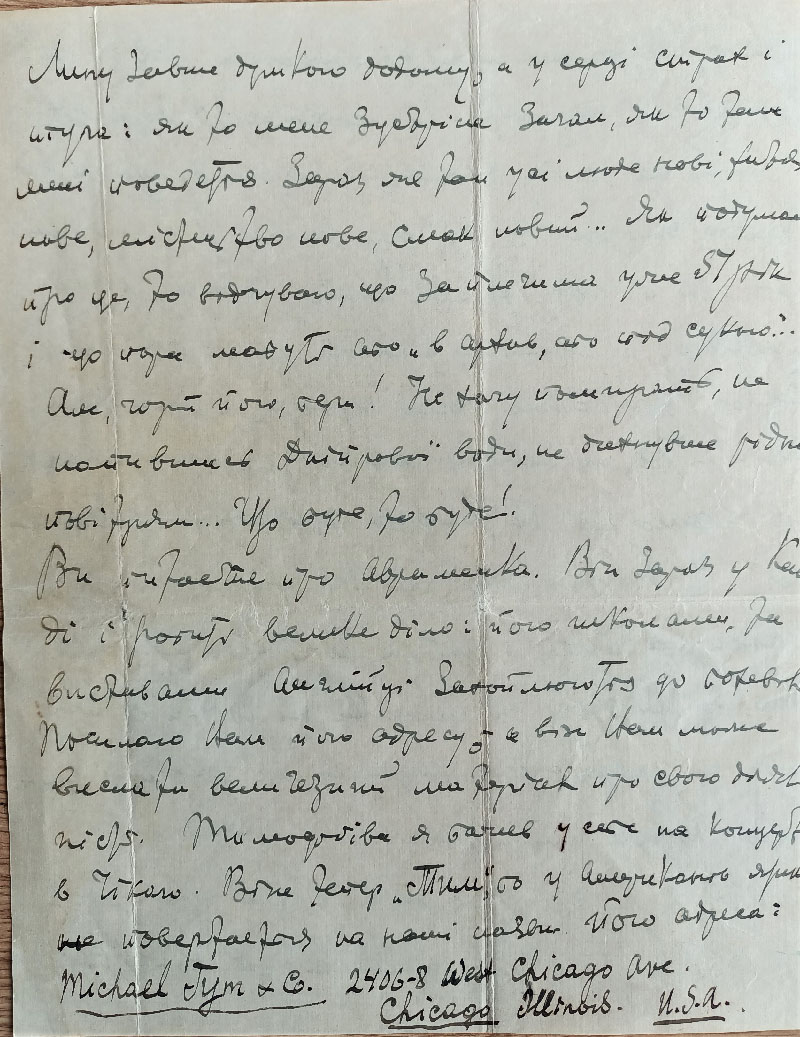 Лину завше думкою додому, а у серці страх і
туга: як то мене зустріне загал, як то там
мені поведеться. Зараз же там усі люде нові,
нове, мистецтво нове, смак новий... Як подумаю
про це, то відчуваю, що за плечима уже 57 рік
і що пора мабуть або „в архів, або під сукно"...
Але, чорт його, бери! Не хочу помирать, не
напившись Дніпрової води, не дихнувше рідним
повітрям... Що буде, то буде!
Ви питаєте про Авраменка. Він зараз у Кана-
ді і робить велике діло: його школами, та
виставами Англійці захоплюються до
Посилаю Вам його адресу, а він Вам може
вислати величезний матеріял про свою діяль-
ність. Тимофіїва я бачив у себе на концерті
в Чікаго. Він тепер „Тим", бо у Американців язик
не повертається на наші назви. Його адреса:
Michael Tym & Co. 2406-8 West Chicago Ave.
Chicago Illinois. U.S.A.